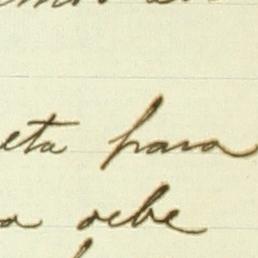 eta para
a debe